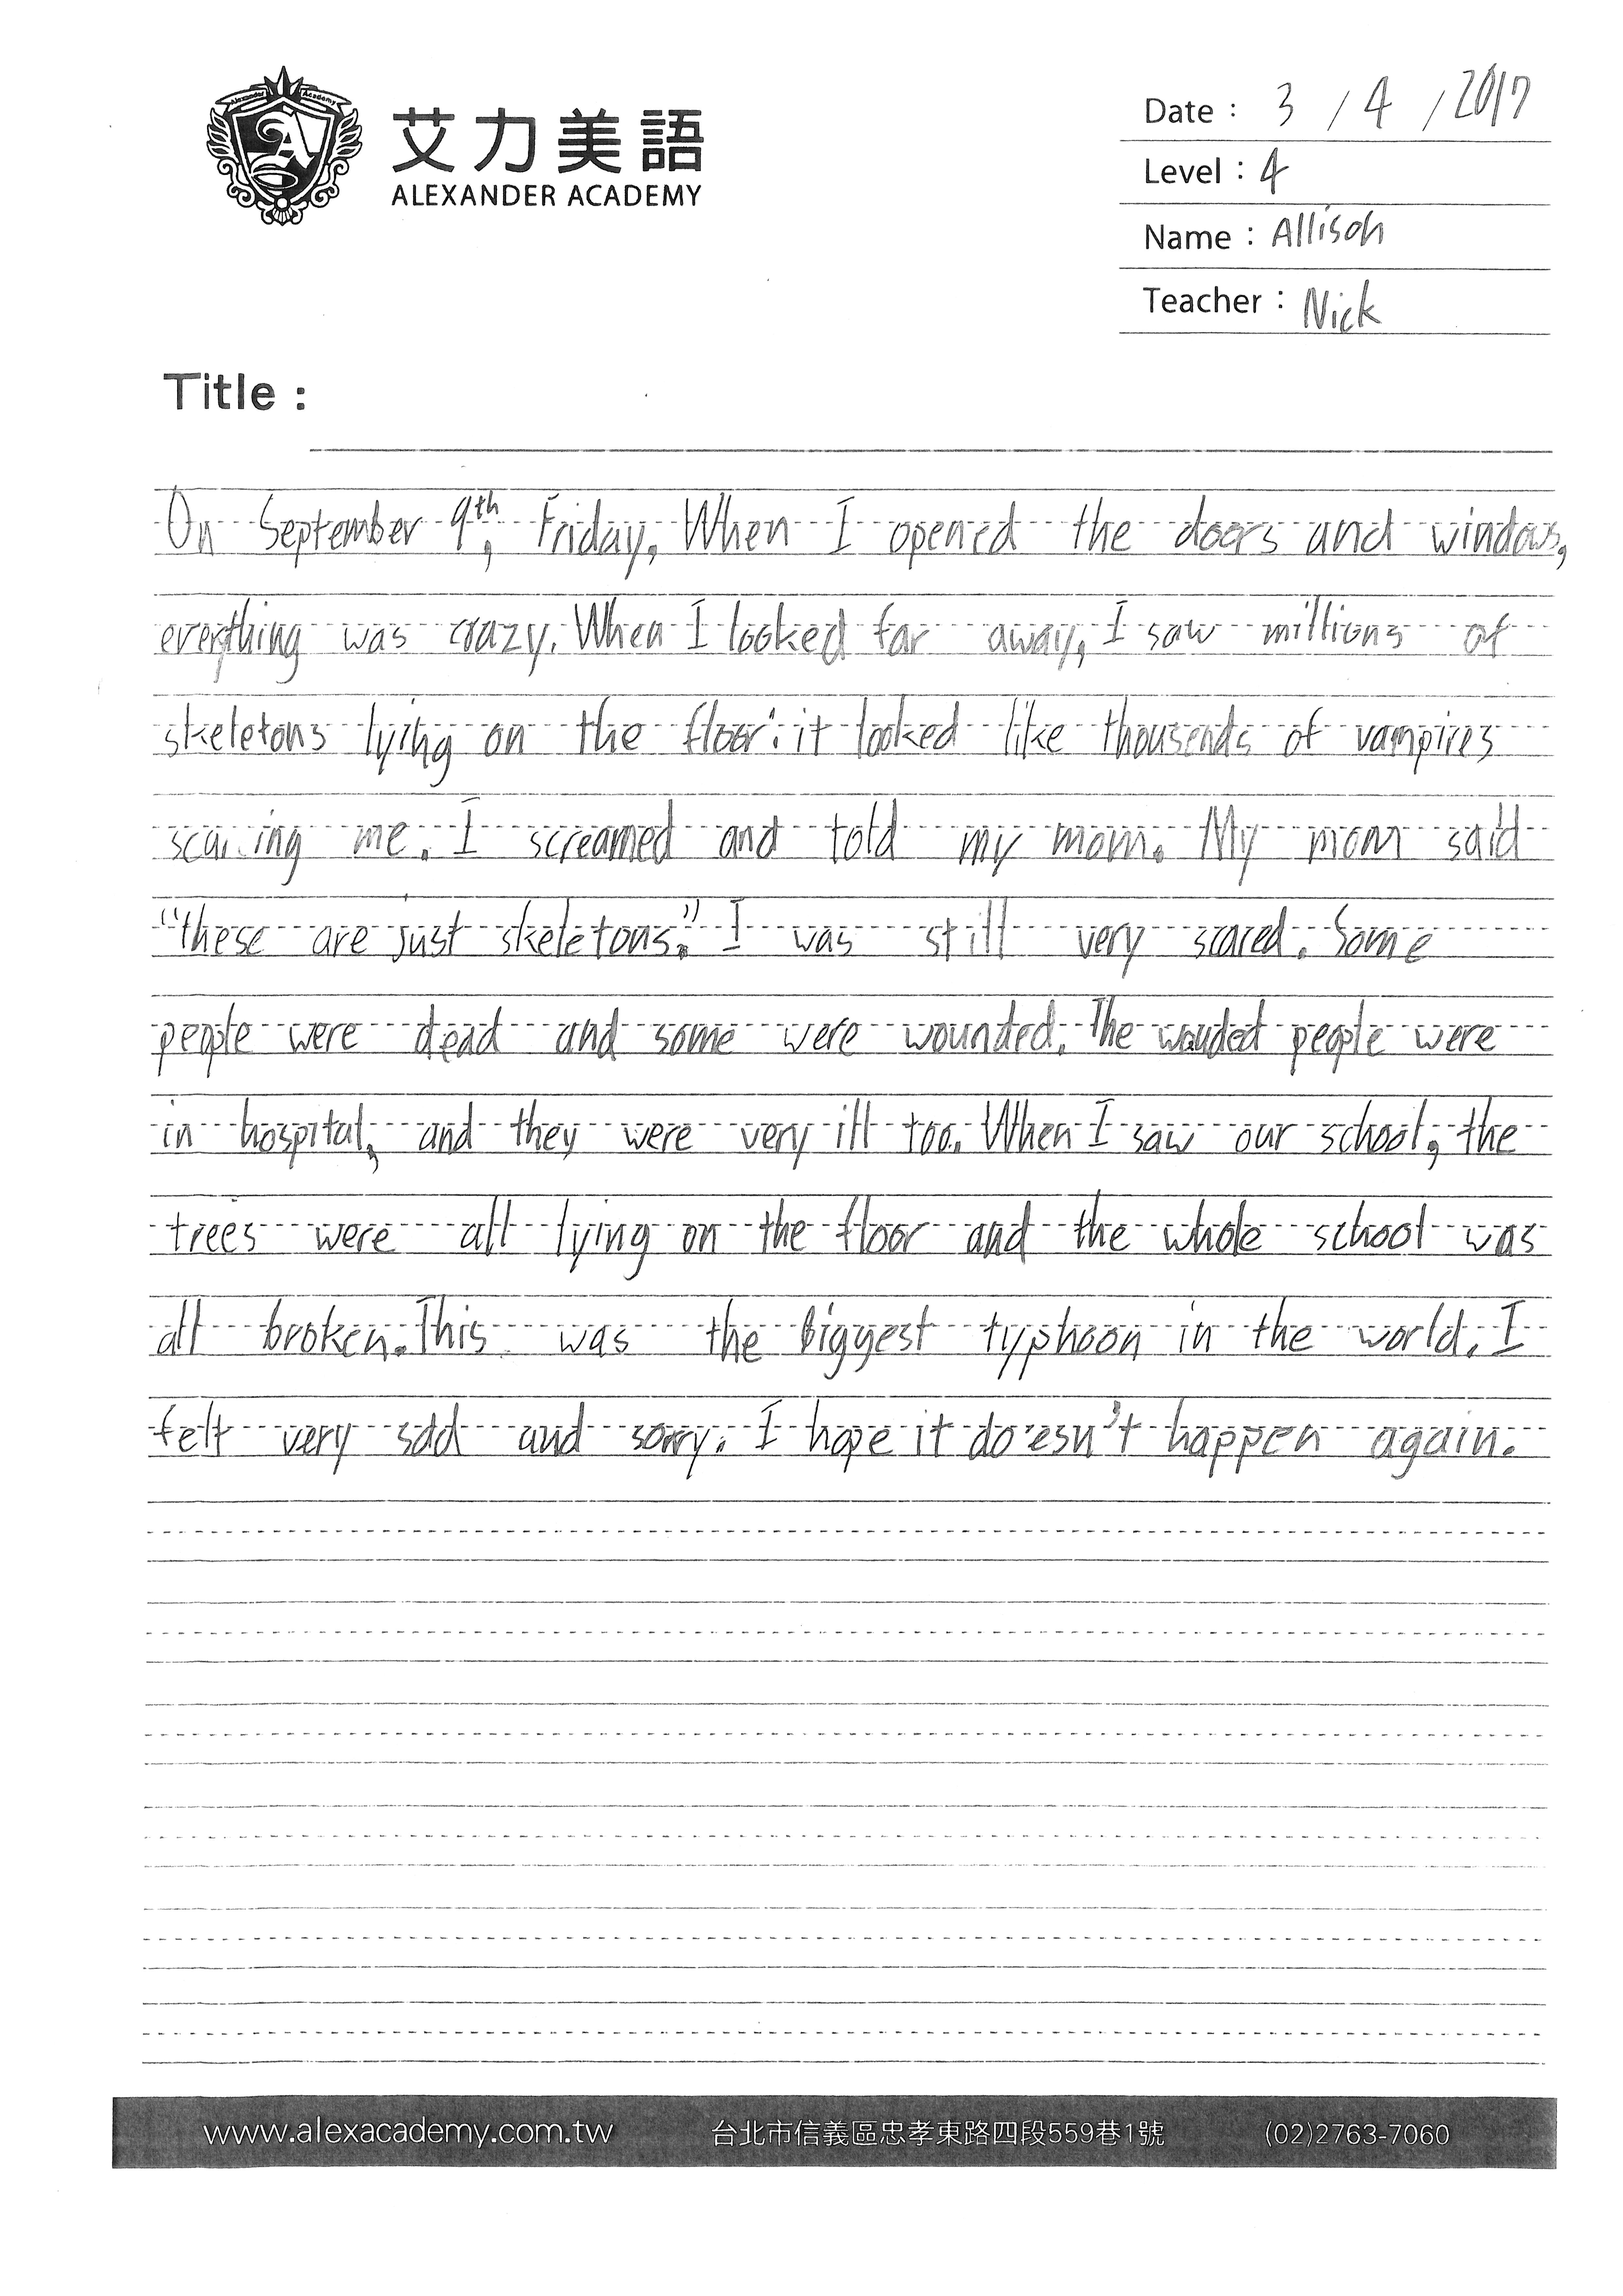 Alexander Academy
艾力美語
ALEXANDER ACADEMY
Date : 3 / 4 / 2017
Level : 4
Name : Allison
Teacher : Nick
Title :
On September 9th, Friday, When I opened the doors and windows,
everything was crazy. When I looked far away, I saw millions of
skeletons lying on the floor: it looked like thousends of vampires
scaring me. I screamed and told my mom. My mom said
"these are just skeletons." I was still very scared. Some
people were dead and some were wounded. The wouded people were
in hospital, and they were very ill too. When I saw our school, the
trees were all lying on the floor and the whole school was
all broken. This was the biggest typhoon in the world. I
felt very sad and sorry. I hope it doesn't happen again.
www.alexacademy.com.tw 台北市信義區忠孝東路四段559巷1號 (02)2763-7060